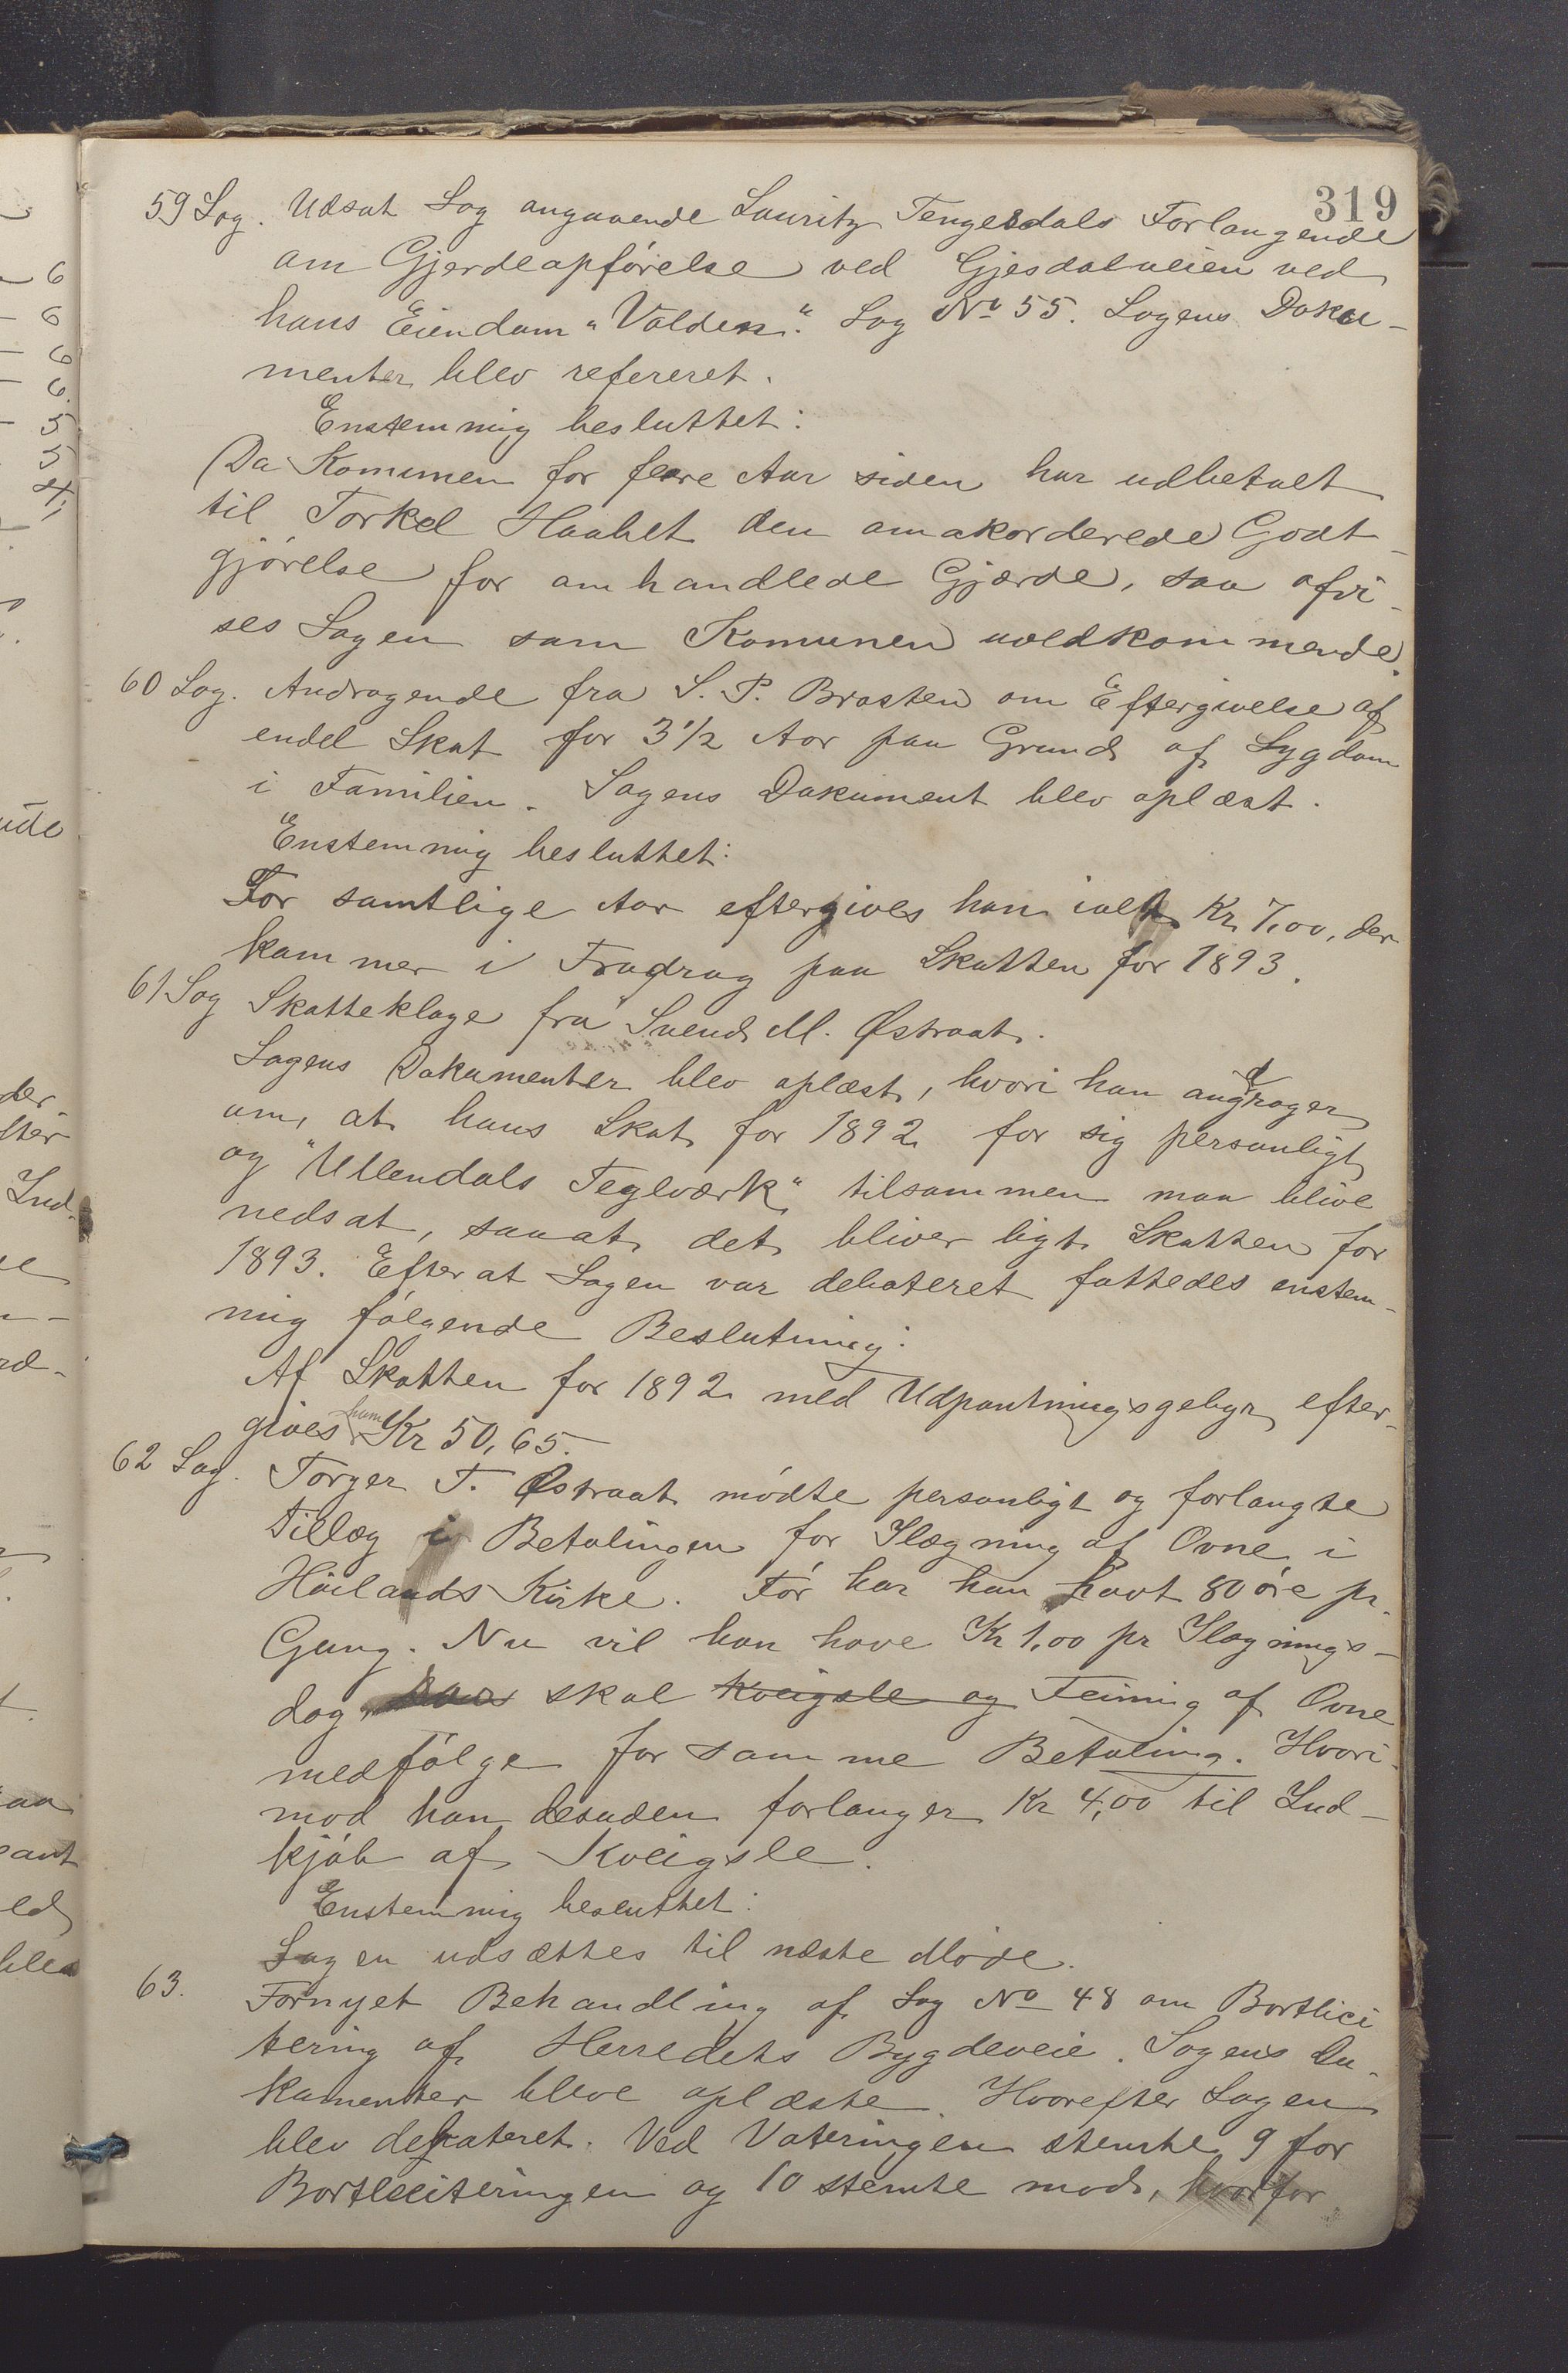 319
59 Sag. Udsat Sag angaaende Lauritz Tengesdals Forlangende
om Gjerdeopførelse ved Gjesdalveien ved
hans Eiendom "Volden". Sag No 55. Sagens Doku-
menter blev refereret.
Enstemmig besluttet:
Da Komunen for flere Aar siden har udbetalt
til Torkel Haabet den omakorderede Godt-
gjørelse for omhandlede Gjærde, saa afvi-
ses Sagen som Komunen uvedkommende.
60 Sag. Andragende fra S. P. Brasten om Eftergivelse af
endel Skat for 3 1/2 Aar paa Grund af Sygdom
i Familien. Sagens Dokument blev oplæst.
Enstemmig besluttet:
For samtlige Aar eftergives han ialt Kr. 7,00, der
kommer i Fradrag paa Skatten for 1893.
61 Sag Skatteklage fra Svend M. Østraat.
Sagens Dokumenter blev oplæst, hvori han andrager
om, at hans Skat for 1892 for sig personligt
og "Ullendals Teglværk" tilsammen maa blive
nedsat, saaat det bliver ligt Skatten for
1893. Efterat Sagen var debateret fattedes enstem-
mig følgende Beslutning:
Af Skatten for 1892 med Udpantningsgebyr efter-
gives ham Kr 50,65.
62 Sag. Torger T. Østraat mødte personligt og forlangte
Tillæg i Betalingen for Ilægning af Ovne i
Høilands Kirke. Før har han havt 80 øre pr.
Gang. Nu vil han have Kr 1,00 pr Ilægnings-
dag, skal Kveigsle og Feining af Ovne
medfølge for samme Betaling. Hvori-
mod han desuden forlanger Kr 4,00 til Ind-
kjøb af Kveigsle.
Enstemmig besluttet:
Sagen udsættes til næste Møde.
63. Fornyet Behandling af Sag No 48 om Bortlici
tering af Herredets Bygdeveie. Sagens Do-
kumenter bleve oplæste. Hvorefter Sagen
blev debateret. Ved Voteringen stemte 9 for
Bortliciteringen og 10 stemte mod, hvorfor